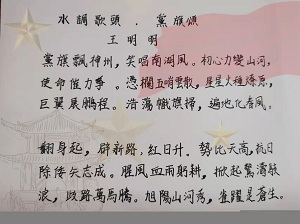 水調歌頭．黨旗頌
王明明
黨旗飄神州，笑唱南湖風。初心力變山河，
使命催力爭。憑欄五哨雲散，星星火種燎原，
巨翼展鵬程。浩蕩幟旗掃，遍地化春風。
翻身起，闢新路，紅日升。勢比天高，抗日
除倭矢志成。腥風血雨躬耕，掀起驚濤駭
浪，歧路萬馬騰。旭陽山河秀，雀躍是蒼生。